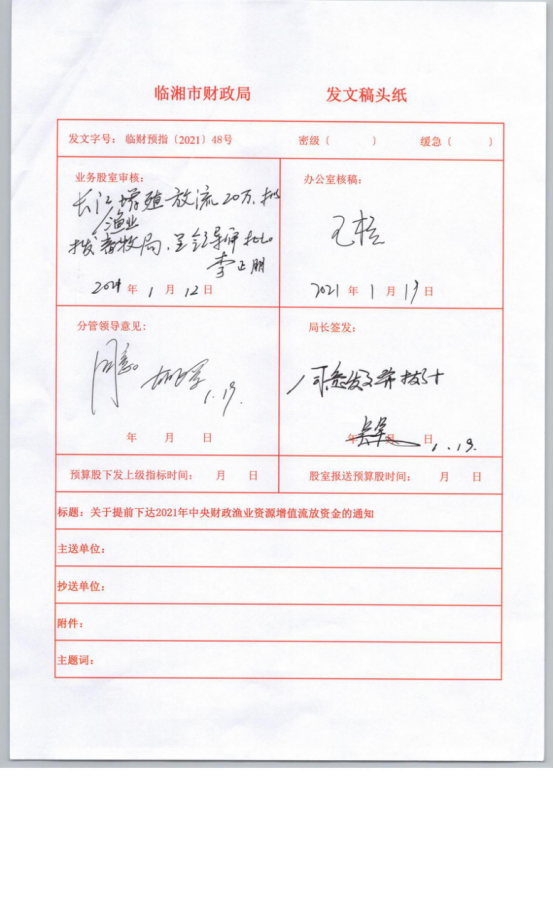 临湘市财政局 发文稿头纸
发文字号： 临财预指〔2021〕48号 密级（ ） 缓急（ ）
业务股室审核：
长江增殖放流20万，拟
渔业
拨畜牧局，呈领导审批。
李正朋
2021 年 1 月 12 日
办公室核稿：
2021 年 1 月 19 日
分管领导意见：
同意。
1.19.
年 月 日
局长签发：
年 月 日 1.19.
预算股下发上级指标时间： 月 日 股室报送预算股时间： 月 日
标题：关于提前下达2021年中央财政渔业资源增值流放资金的通知
主送单位：
抄送单位：
附件：
主题词：